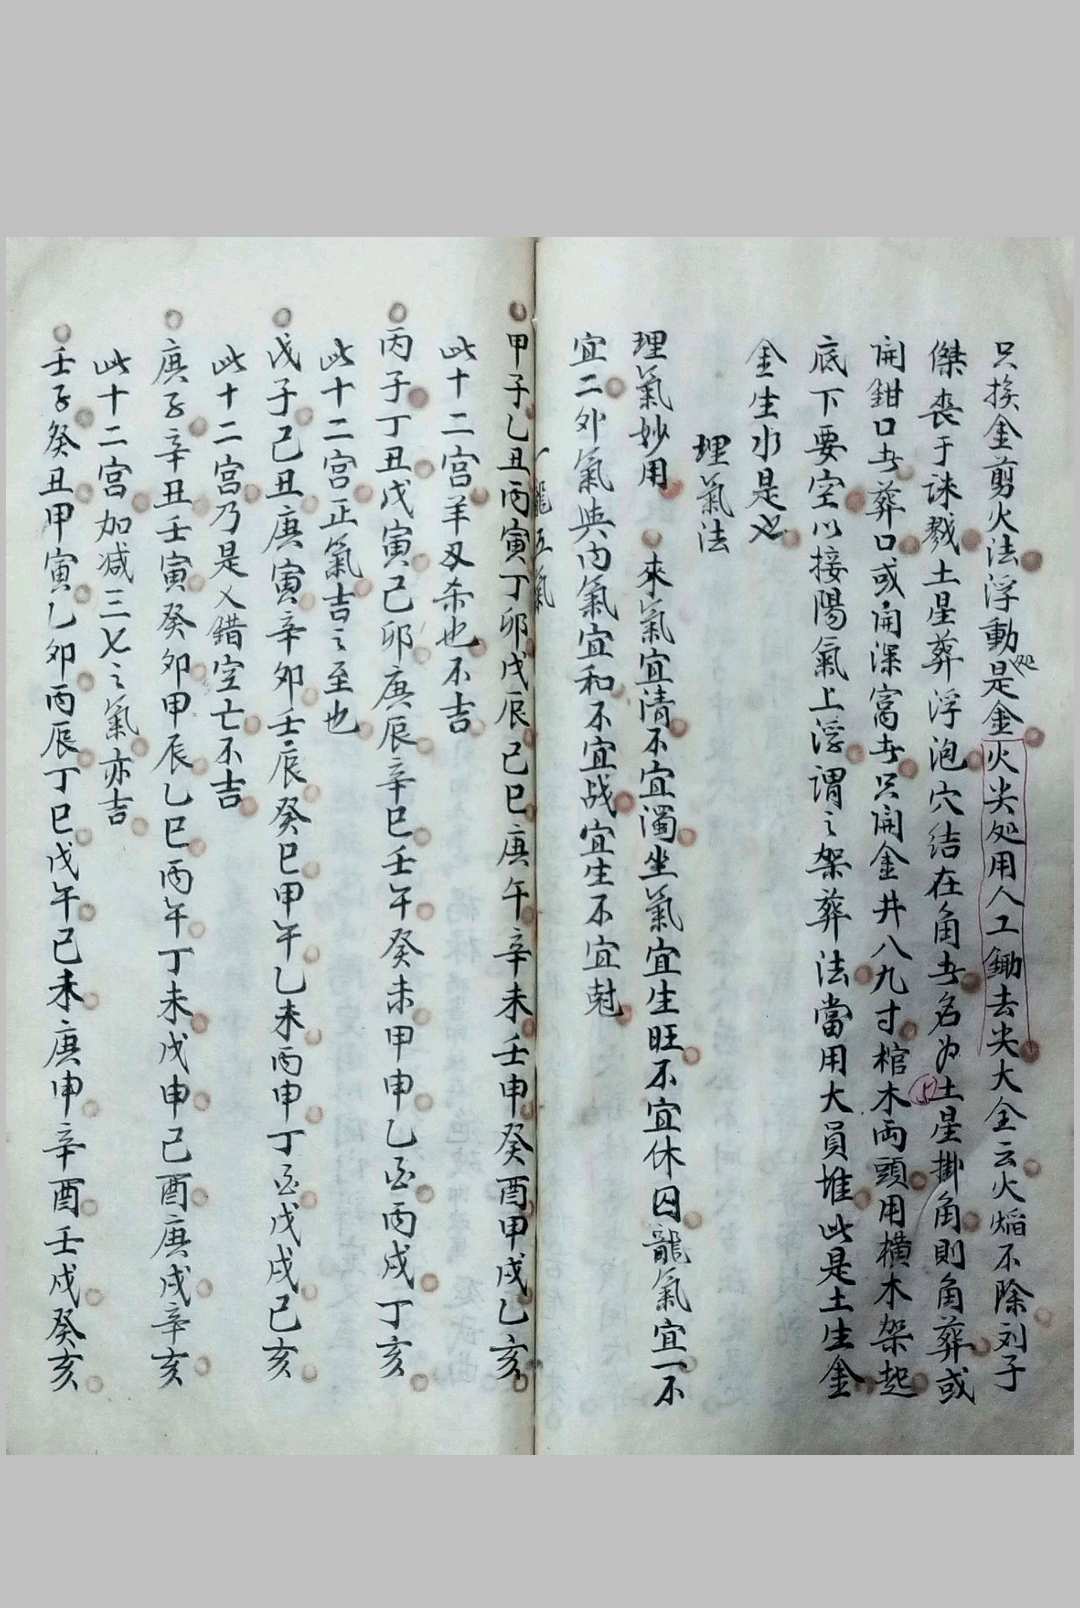 只挨金剪火法浮動处是金火尖処用人工鋤去尖大全云火焰不除刘子
傑喪于誅戮土星葬浮泡穴結在角者名为土星掛角則角葬或
開鉗口者葬口或開深窩者只開金井八九寸棺木両頭用橫木架起
底下要空以接陽氣上浮謂之架葬法當用大員堆此是土生金
金生水是也
理氣法
理氣妙用 來氣宜清不宜濁坐氣宜生旺不宜休囚龍氣宜一不
宜二外氣與内氣宜和不宜战宜生不宜尅
龍五氣
甲子乙丑丙寅丁卯戊辰己巳庚午辛未壬申癸酉甲戌乙亥
此十二宫羊刄杀也不吉
丙子丁丑戊寅己卯庚辰辛巳壬午癸未甲申乙酉丙戌丁亥
此十二宫正氣吉之至也
戊子己丑庚寅辛卯壬辰癸巳甲午乙未丙申丁酉戊戌己亥
此十二宫乃是乂錯空亡不吉
庚子辛丑壬寅癸卯甲辰乙巳丙午丁未戊申己酉庚戌辛亥
此十二宫加减三七之氣亦吉
壬子癸丑甲寅乙卯丙辰丁巳戊午己未庚申辛酉壬戌癸亥